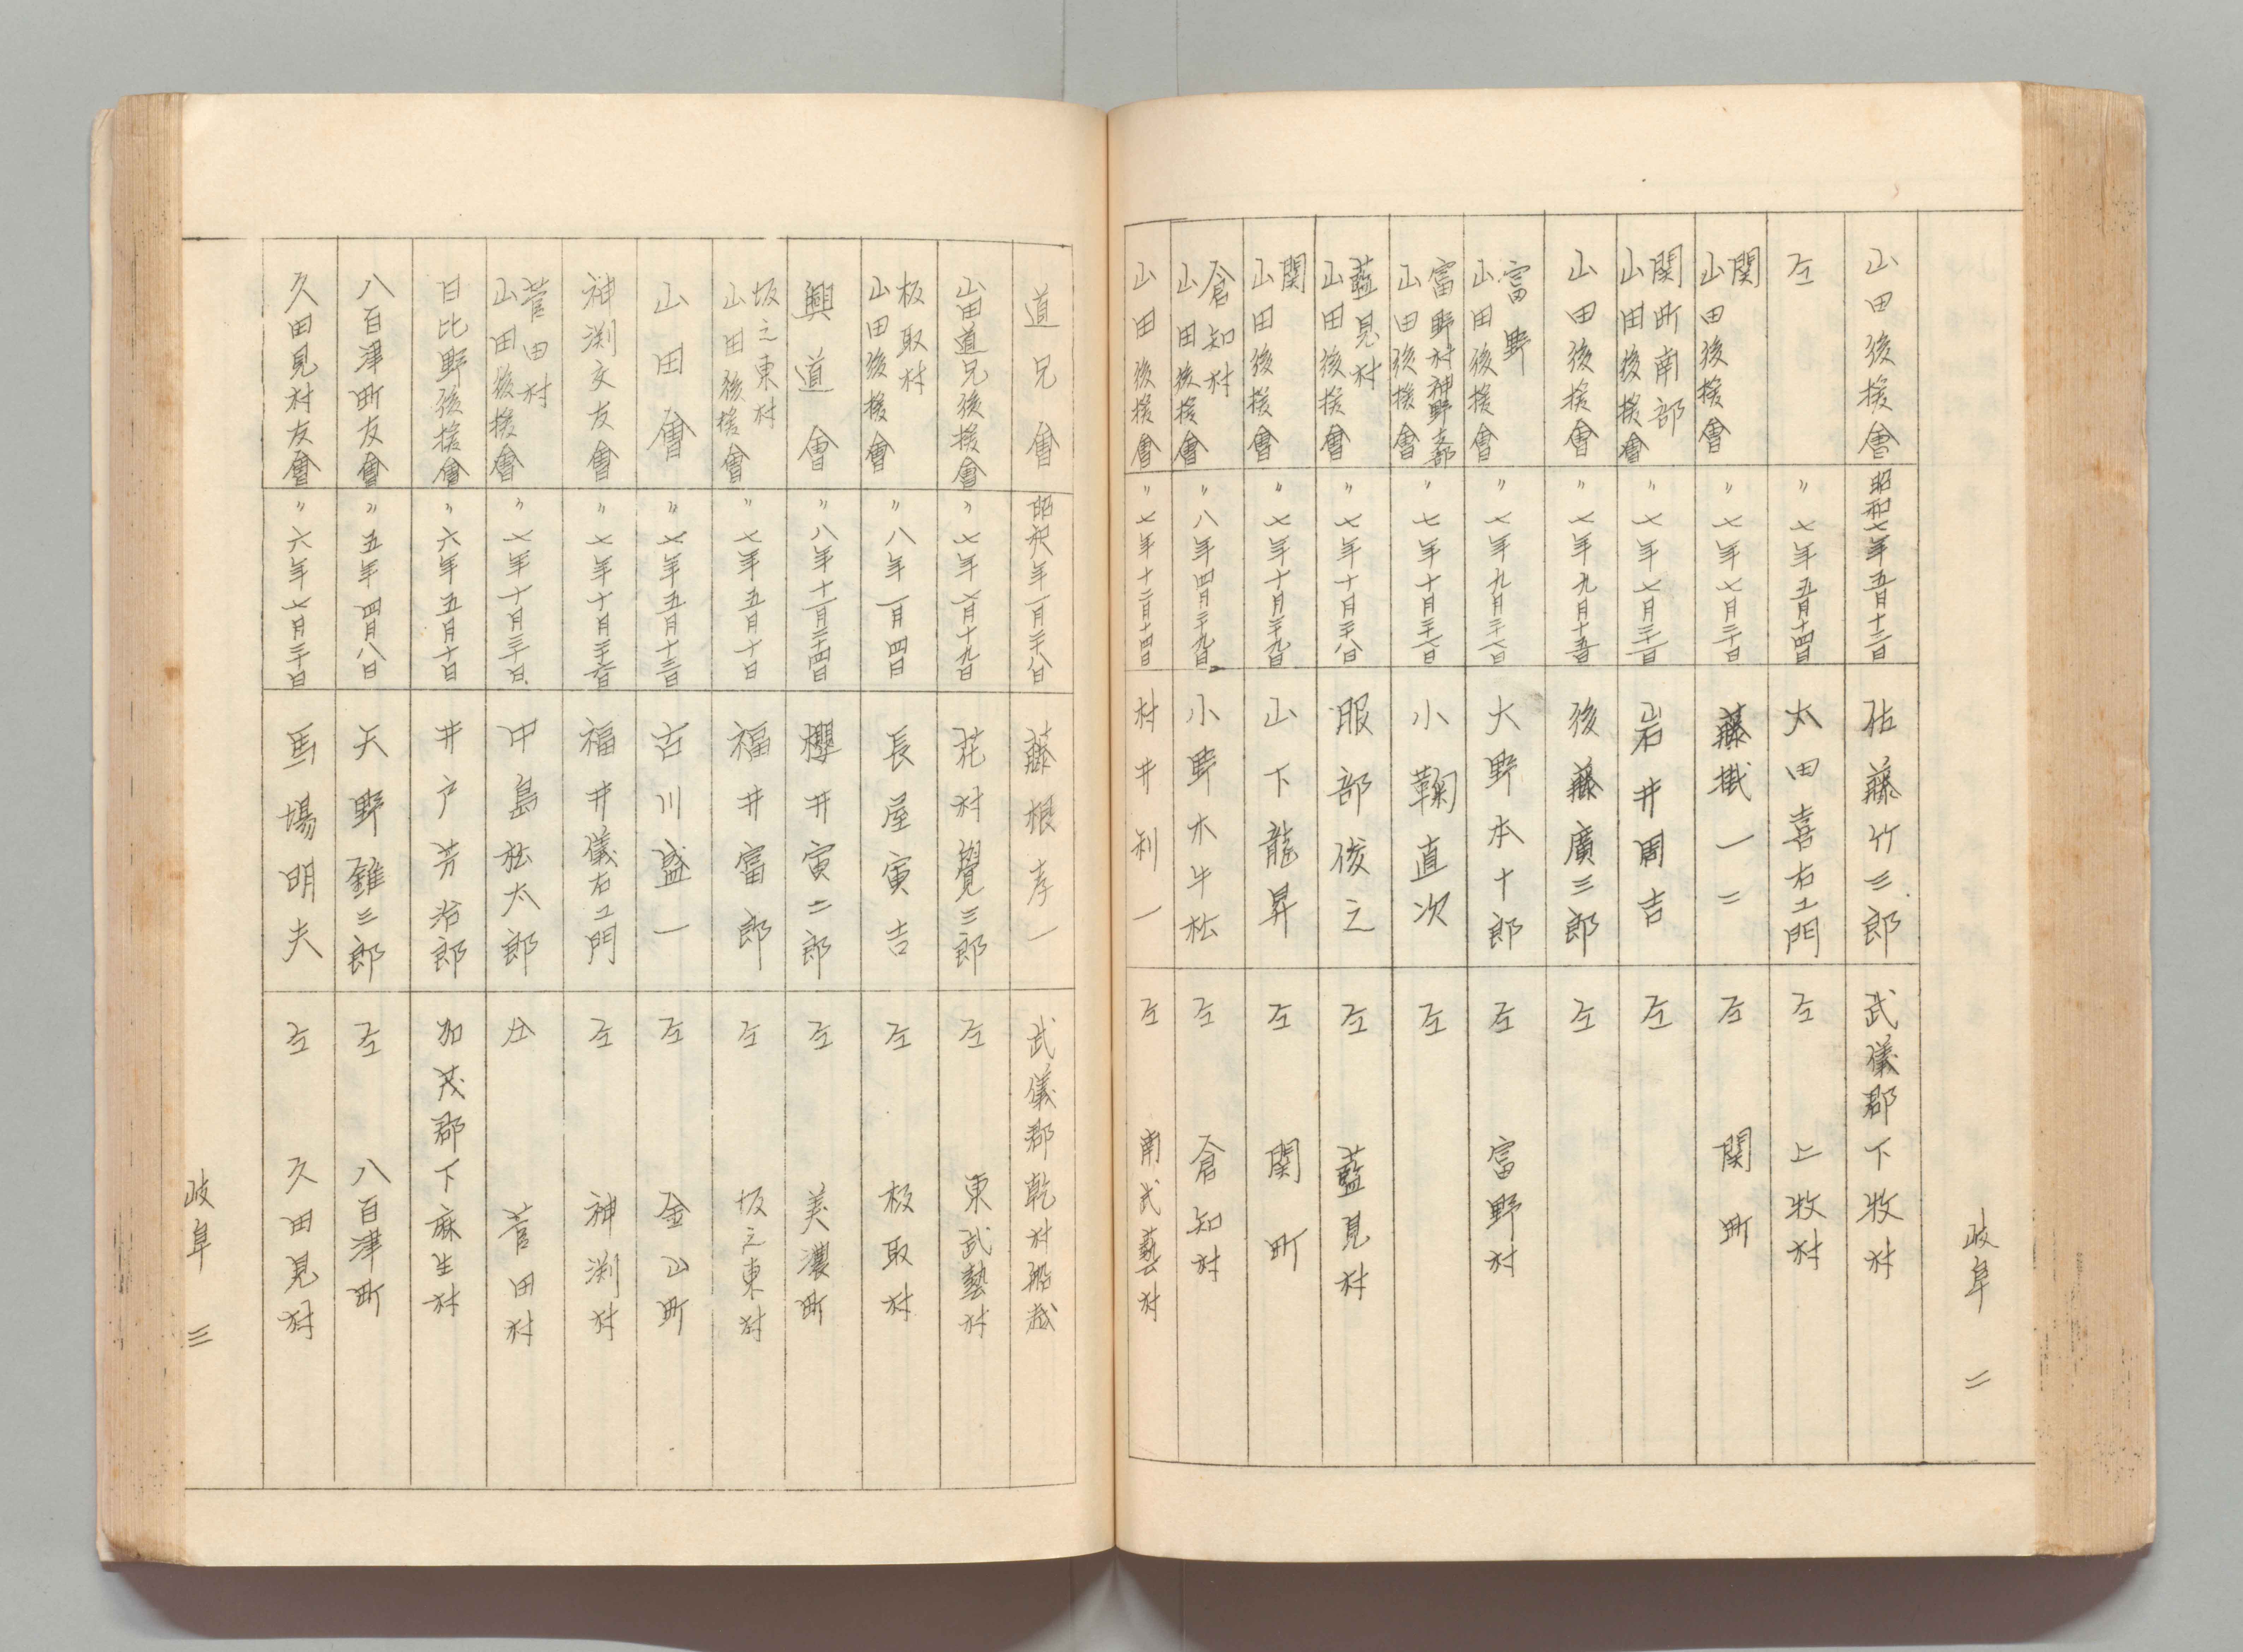 岐阜 二
山田後援會 昭和七年五月十二日 佐藤竹三郎 武儀郡下牧村
仝 〃七年五月十四日 太田喜右エ門 仝 上牧村
関
山田後援會 〃七年七月二十日 藤掛一二 仝 関町
関町南部
山田後援會 〃七年七月二十一日 岩井周吉 仝
山田後援會 〃七年九月十五日 後藤廣三郎 仝
富野
山田後援會 〃七年九月二十八日 大野本十郎 仝 富野村
富野村神野支部
山田後援會 〃七年十月二十六日 小鞠直次 仝
藍見村
山田後援會 〃七年十月二十八日 服部俊之 仝 藍見村
関
山田後援會 〃七年十月二十九日 山下龍昇 仝 関町
倉知村
山田後援會 〃八年四月二十九日 小野木牛松 仝 倉知村
山田後援會 〃七年十二月十四日 村井利一 仝 南武藝村
道兄會 昭和八年一月二十八日 藤根孝一 武儀郡乾村船越
山田道兄後援會 〃七年七月十九日 花村覺三郎 仝 東武藝村
板取村
山田後援會 〃八年一月四日 長屋寅吉 仝 板取村
興道會 〃八年十一月二十四日 櫻井寅二郎 仝 美濃町
坂之東村
山田後援會 〃七年五月十日 福井富郎 仝 坂之東村
山田會 〃七年五月十三日 古川盛一 仝 金山町
神渕交友會 〃七年十月二十六日 福井儀右エ門 仝 神渕村
菅田村
山田後援會 〃七年十月三十日 中島松太郎 仝 菅田村
日比野後援會 〃六年五月十日 井戸芳治郎 加茂郡下麻生村
八百津町友會 〃五年四月八日 天野錐三郎 仝 八百津町
久田見村友會 〃六年七月三十日 馬場明夫 仝 久田見村
岐阜 三